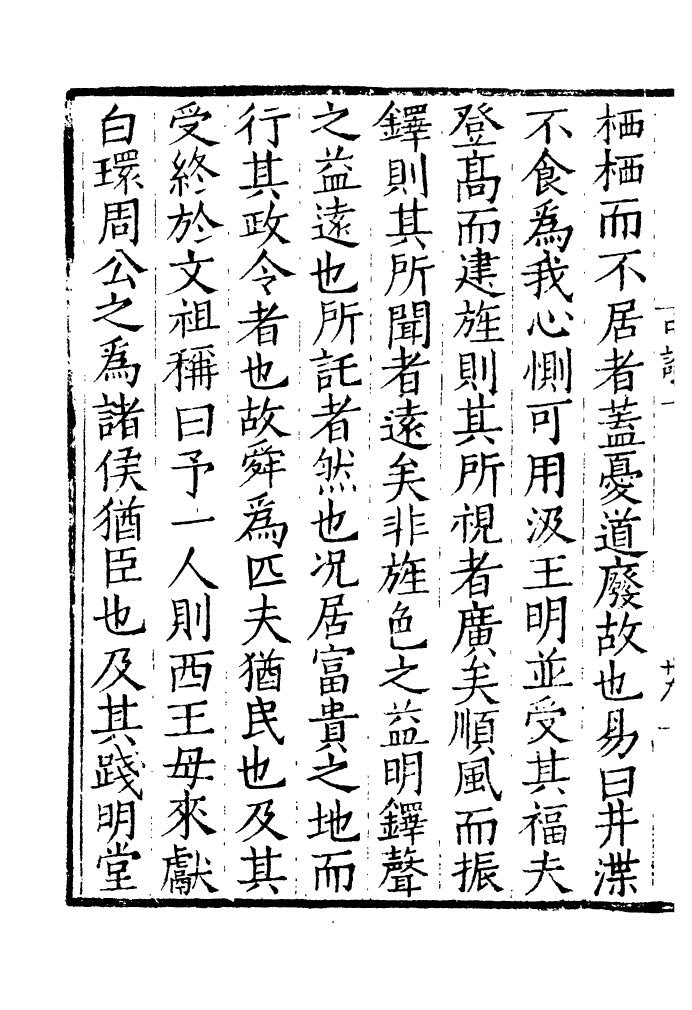 栖栖而不居者蓋憂道廢故也易曰井渫
不食為我心惻可用汲王明並受其福夫
登髙而建旌則其所視者廣矣順風而振
鐸則其所聞者遠矣非旌色之益明鐸聲
之益遠也所託者然也况居富貴之地而
行其政令者也故舜為匹夫猶民也及其
受終於文祖稱曰予一人則西王母來獻
白環周公之為諸侯猶臣也及其踐明堂